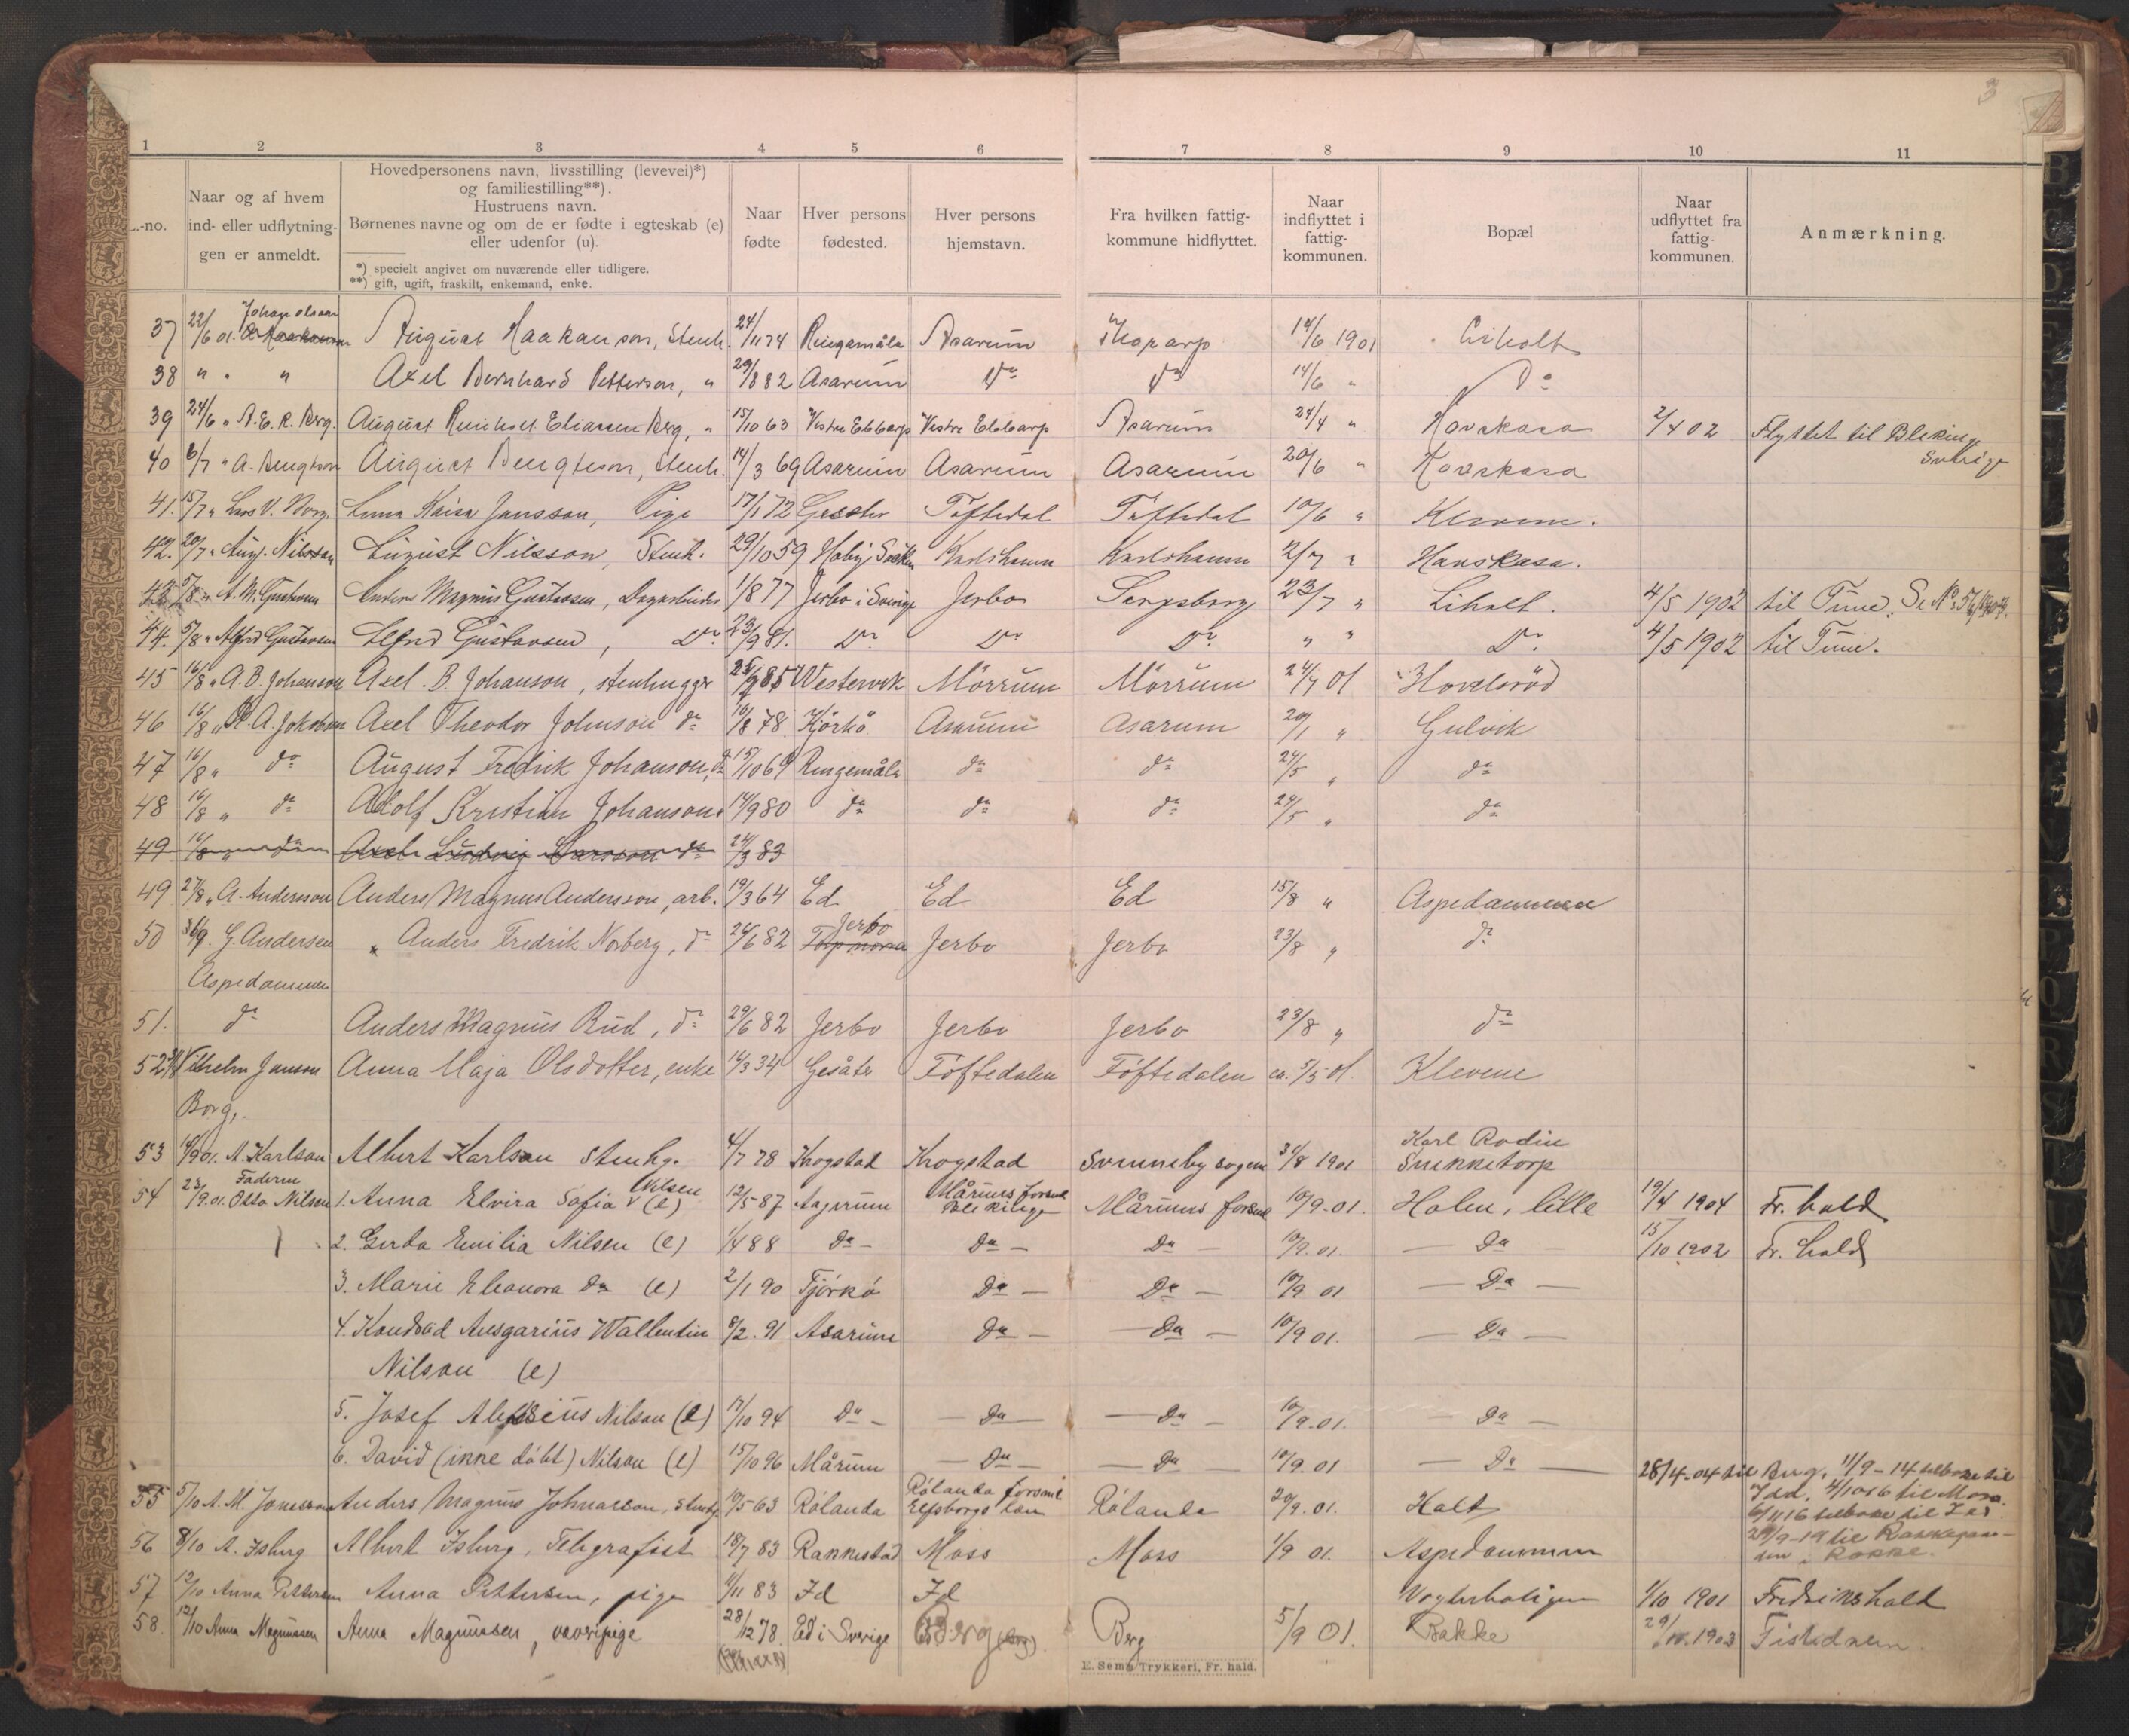 3
1 2 3 4 5 6 7 8 9 10 11
-no.
Naar og af hvem
ind- eller udflytning-
gen er anmeldt.
Hovedpersonens navn, livsstilling (levevei)*)
og familiestilling**).
Hustruens navn.
Børnenes navne og om de er fødte i egteskab (e)
eller udenfor (u).
*) specielt angivet om nuværende eller tidligere.
**) gift, ugift, fraskilt, enkemand, enke.
Naar
fødte
Hver persons
fødested.
Hver persons
hjemstavn.
Fra hvilken fattig-
kommune hidflyttet.
Naar
indflyttet i
fattig-
kommunen.
Bopæl
Naar
udflyttet fra
fattig-
kommunen.
Anmærkning.
37 22/6 01. August Haakanson, Stenh. 24/11 74 Ringamåla Asarum 14/6 1901
38 " " " Axel Bernhard Petterson, " 29/8 82 Asarum Do Do 14/6 " Do
39 24/6 " A. E. R. Berg. August Eliassen Berg, " 15/10 63 Vestre Ebbarp Vestre Ebbarp Asarum 24/4 " 2/4 02 Flyttet til Bleking
Sverige
40 6/7 " A. Bengtson August Bengtsson, Stenh. 14/3 69 Asarum Asarum Asarum 20/6 "
41. 15/7 " Lars V. Borg. Kaisa Jansson, Pige 17/1 72 Töftedal Töftedal 10/6 " Klevene.
42. 20/7 " Aug. Nilsson August Nilsson, Stenh. 29/10 59 Karlshamn Karlshamn 2/7 "
43 5/8 " A. M. Gustavsen Anders Magnus Gustavsen, Dagarbeider 1/8 77 Jerbo i Sverige Jerbo Sarpsborg 23/7 " Liholt. 4/5 1902 til Tune.
44. 5/8 " Alfrid Gustavsen Alfrid Gustavsen, Do 23/9 81. Do. Do Do. " " Do. 4/5 1902 til Tune.
45 16/8 " A. B. Johanson Axel. B. Johanson, stenhugger 85 Westervik Mörrum Mörrum 24/7 01
46 16/8 " Axel Theodor Johnson do 16/8 78. Asarum Asarum 20/1 " Gulvik
47 16/8 " do August Fredrik Johanson, do 15/10 64 Ringemåla do do 24/5 " do
48 16/8 " do Adolf Kristian Johanson 14/9 80 do do do 24/5 " do
49 16/8 " do Axel Ludvig do 24/3 83
49 27/8 " A. Andersson Anders Magnus Andersson, arb. 19/3 64 Ed Ed Ed 15/8 " Aspedammen
50 G. Andersen " Anders Fredrik Norberg, do 24/6 82 Jerbo Jerbo Jerbo 23/8 " do
Aspedammen
51. do Anders Magnus Rud, do 29/6 82 Jerbo Jerbo Jerbo 23/8 " do
52 Vilhelm Janson Anna Maja Olsdotter, enke 14/3 34 Gesäter Töftedalen Töftedalen ca. 5/5 01. Klevene
Borg,.
53 A. Karlson Albert Karlson Stenhg. 4/7 78 Krogstad Krogstad Svinneby sogen 31/8 1901 Karl Rodin
Snikketorp
54 23/9.01. Faderen Otto Nilsen 1. Anna Elvira Sofia Nilsen (e) 12/5 87 Mårums forsml Mårums forsml 10/9-01. Holen, lille 19/4 1904 Fr. hald
2. Gerda Emilia Nilsen (e) 1/4 88 Do - Do - Do - 10/9.01. - Do - 15/10 1902 Fr. hald
3. Marie Eleonora Do (e) 2/1 90 Tjörkö Do - Do - 10/9 01 - Do -
4. Kondrad Ansgarius Wallentin 8/2. 91 Asarum Do - - Do - 10/9 01. - Do -
Nilson (e)
5. Josef Nilson (e) 17/10 94 Do - - Do - - Do - 10/9.01. - Do -
6. David (inne döbt) Nilson (e) 15/10 96 Mårum - Do - - Do - 10/9.01 - Do -
55 5/10 A. M. Jonasson Anders Magnus Johnasson, stenhg 10/5 63 Rölanda Rölanda forsml
Elfsborgs län Rölanda 20/9.01. Holt 28/4-04 til Berg, 11/9-14 tilbage til
Idd, til Moss.
6/11 16 tilbake til Id
29/9-19 til
Rokke.
56 8/10 A. Isberg Albert Isberg, Telegrafist 18/7 83 Rakkestad Moss Moss 1/9 01. Aspedammen
57 12/10 Anna Pettersen Anna Pettersen, pige 83 Id Id 1/10 1901 Fredrikshald
58. 12/10 Anna Magnussen Anna Magnussen, væverpige 28/12 78. Ed i Sverige Berg Berg 5/9 01. Bakke 1903 Tistedalen.
E. Sems Trykkeri, Fr. hald.